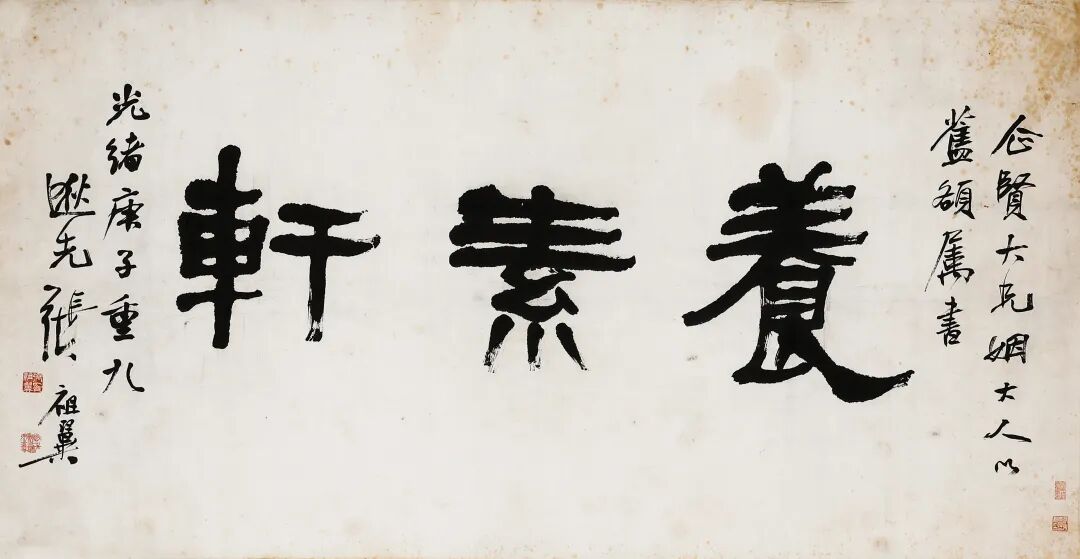 企賢大兄姻大人以
舊額属書
養素軒
光緒庚子重九
逖先張祖翼